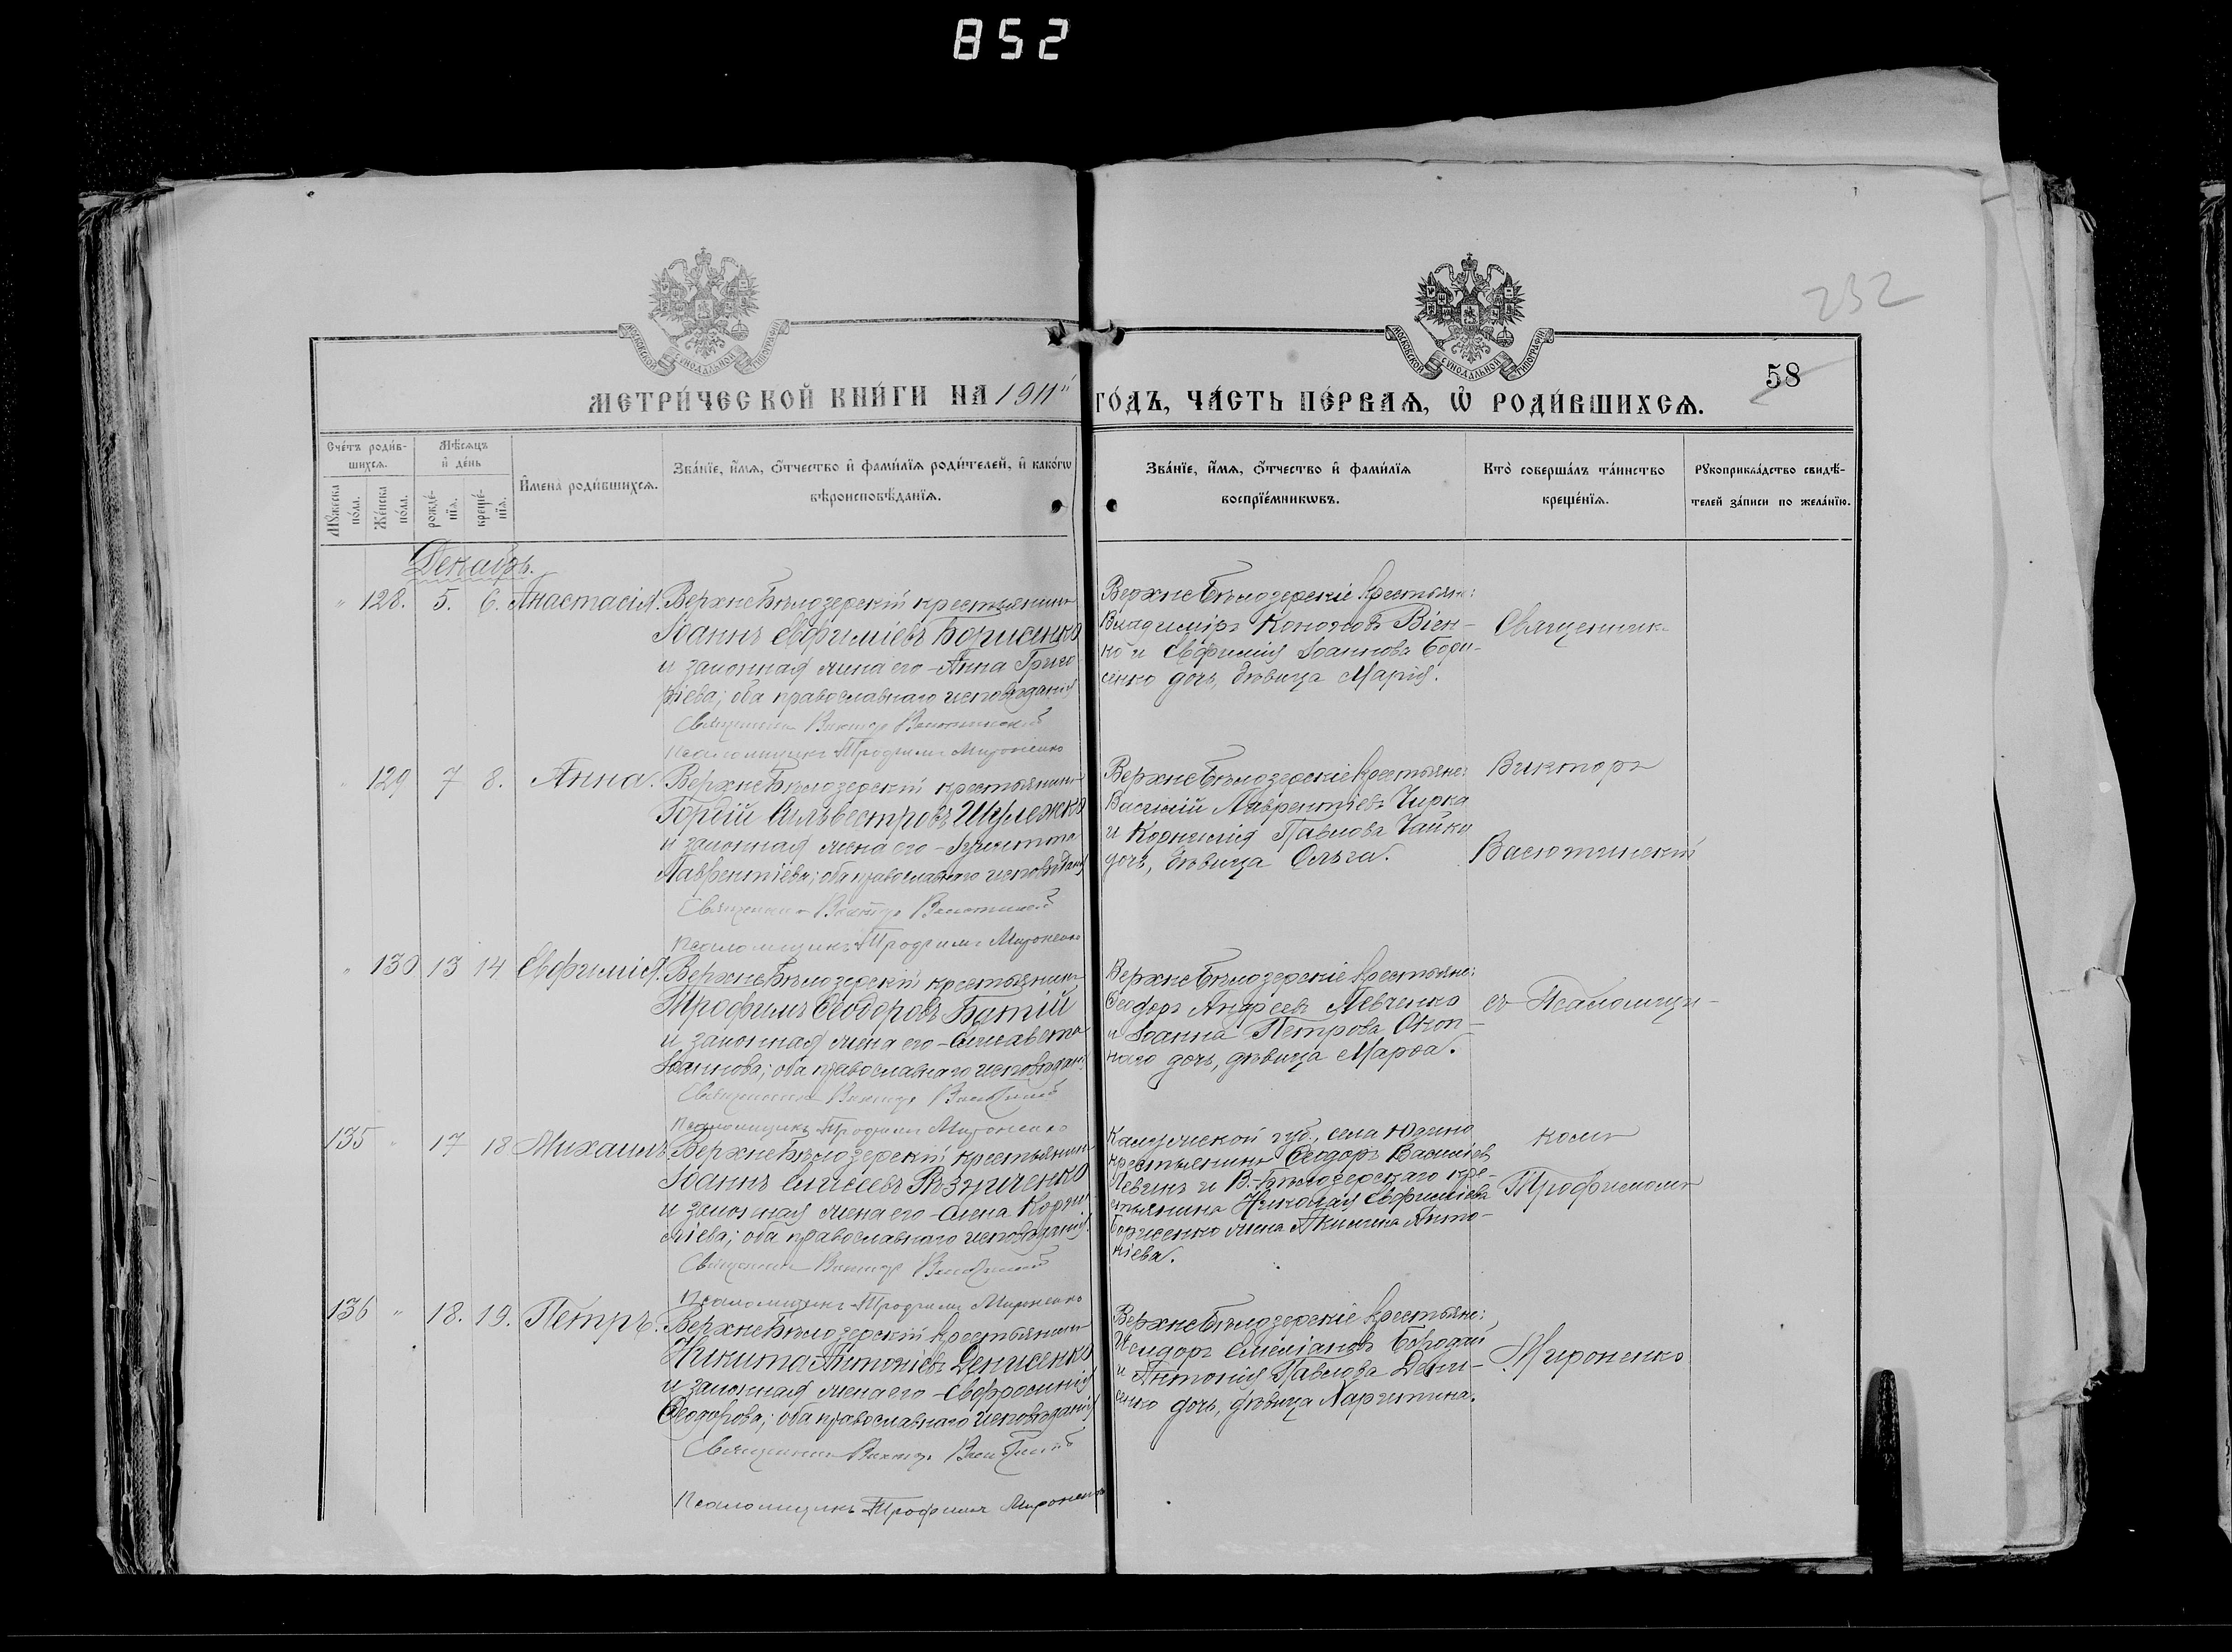 852
232
58
МОСКОВСКОЙ СѴНОДАЛЬНОЙ ТИПОГРАФІИ
МОСКОВСКОЙ СѴНОДАЛЬНОЙ ТИПОГРАФІИ
МЕТРИ́ЧЕСКОЙ КНИ́ГИ НА 1911й ГО́ДЪ, ЧА́СТЬ ПЕ́РВАѦ, Ѡ҆ РОДИ́ВШИХСѦ.
Сче́тъ роди́в-
шихсѧ.
Мꙋ́жеска
по́ла.
Же́нска
по́ла.
Мѣ́сѧцъ
и҆ де́нь
рожде́-
нїѧ.
креще́-
нїѧ.
И҆мена̀ роди́вшихсѧ.
Зва́нїе, и҆́мѧ, ѻ҆́тчество и҆ фами́лїѧ роди́телей, и҆ како́гѡ
вѣроисповѣ́данїѧ.
Зва́нїе, и҆́мѧ, ѻ҆́тчество и҆ фами́лїѧ
воспрїе́мникѡвъ.
Кто̀ соверша́лъ та́инство
креще́нїѧ.
Рꙋкоприкла́дство свидѣ́-
телей за́писи по жела́нїю.
Декабрь.
" 128. 5. 6. Анастасія.
ВерхнеБѣлозерскій крестьянинъ
Іоаннъ Евфиміевъ Борисенко
и законная жена его - Анна Григо
ріева; оба православнаго исповѣданія
Священникъ Викторъ Васютинскій
Псаломщикъ Трофимъ Мироненко
ВерхнеБѣлозерскіе крестьяне:
Владиміръ Кононовъ Віен-
ко и Евфимія Іоаннова Бори-
сенко дочь, дѣвица Марія.
Священник
" 129 7 8. Анна.
ВерхнеБѣлозерскій крестьянинъ
Гордій Сильвестровъ
и законная жена его -
Лаврентіева; оба православнаго исповѣданія
Священникъ Викторъ Васютинскій
Псаломщикъ Трофимъ Мироненко
ВерхнеБѣлозерскіе крестьяне:
Василій Лаврентіевъ Чирка
и Корнилія Павлова Чайки
дочь, дѣвица Ольга.
Викторъ
Васютинскій
" 130 13 14 Евфимія.
ВерхнеБѣлозерскій крестьянинъ
Трофимъ Ѳеодоровъ Батій
и законная жена его - Елисавета
Іоаннова; оба православнаго исповѣданія
Священникъ Викторъ Васютинскій
Псаломщикъ Трофимъ Мироненко
ВерхнеБѣлозерскіе крестьяне:
Ѳеодоръ Андреевъ Левченко
и Іоанна Петрова
дочь, дѣвица Марѳа.
съ Псаломщи-
135 " 17 18 Михаилъ
ВерхнеБѣлозерскій крестьянинъ
Іоаннъ Елисеевъ Рѣзниченко
и законная жена его - Елена Корни-
ліева; оба православнаго исповѣданія
Священникъ Викторъ Васютинскій
Псаломщикъ Трофимъ Мироненко
губ., села Юдино
крестьянинъ Ѳеодоръ Василіевъ
Левинъ и В.-Бѣлозерскаго кре-
стьянина Николая Евфиміева
Борисенко жена Акилина Анто-
ніева.
комъ
Трофимомъ
136 " 18. 19. Петръ.
ВерхнеБѣлозерскій крестьянинъ
Никита Антоніевъ Денисенко
и законная жена его - Евфросинія
Ѳеодорова; оба православнаго исповѣданія
Священникъ Викторъ Васютинскій
Псаломщикъ Трофимъ Мироненко
ВерхнеБѣлозерскіе крестьяне:
Исидоръ Емеліановъ Бородай
и Антонія Павлова Дени-
сенко дочь, дѣвица Харитина.
Мироненко